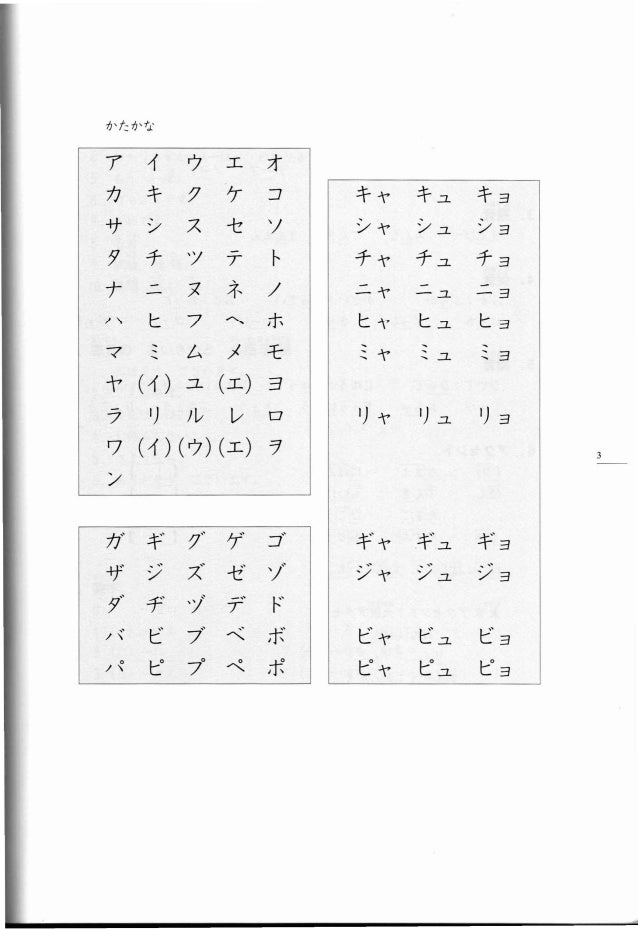 かたかな
ア イ ウ エ オ
カ キ ク ケ コ
サ シ ス セ ソ
タ チ ツ テ ト
ナ ニ ヌ ネ ノ
ハ ヒ フ ヘ ホ
マ ミ ム メ モ
ヤ (イ) ユ (エ) ヨ
ラ リ ル レ ロ
ワ (イ) (ウ) (エ) ヲ
ン
ガ ギ グ ゲ ゴ
ザ ジ ズ ゼ ゾ
ダ ヂ ヅ デ ド
バ ビ ブ ベ ボ
パ ピ プ ペ ポ
キャ キュ キョ
シャ シュ ショ
チャ チュ チョ
ニャ ニュ ニョ
ヒャ ヒュ ヒョ
ミャ ミュ ミョ
リャ リュ リョ
ギャ ギュ ギョ
ジャ ジュ ジョ
ビャ ビュ ビョ
ピャ ピュ ピョ
3